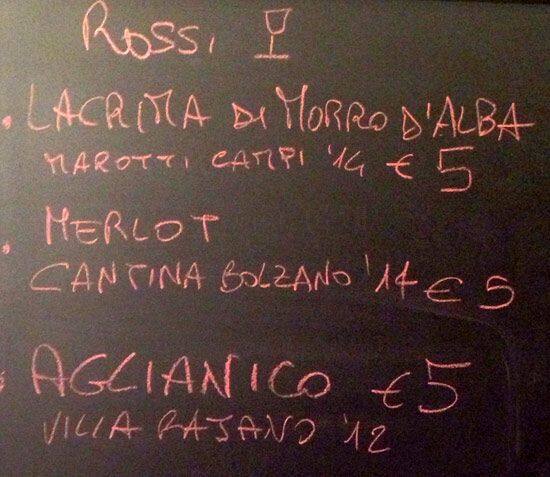 ROSSI
• LACRIMA DI MORRO D'ALBA
MAROTTI CAMPI '14 € 5
• MERLOT
CANTINA BOLZANO '14 € 5
• AGLIANICO € 5
VILLA RAJANO '12